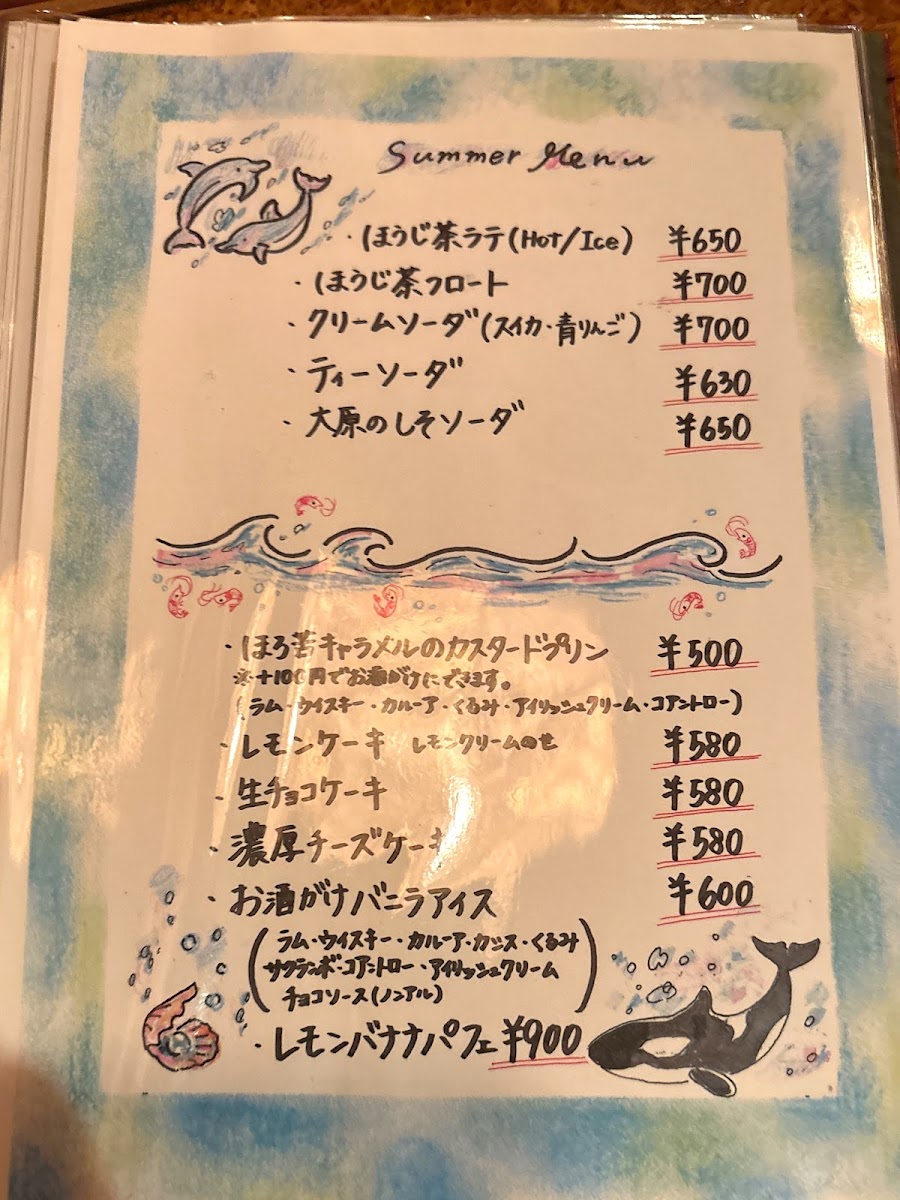 Summer Menu
・ほうじ茶ラテ(Hot/Ice) ¥650
・ほうじ茶フロート ¥700
・クリームソーダ(スイカ・青りんご) ¥700
・ティーソーダ ¥630
・大原のしそソーダ ¥650
・ほろ苦キャラメルのカスタードプリン ¥500
※+100円でお酒がけにできます。
(ラム・ウイスキー・カルーア・くるみ・アイリッシュクリーム・コアントロー)
・レモンケーキ レモンクリームのせ ¥580
・生チョコケーキ ¥580
・濃厚チーズケーキ ¥580
・お酒がけバニラアイス ¥600
(ラム・ウイスキー・カルーア・カシス・くるみ
サクランボ・コアントロー・アイリッシュクリーム
チョコソース(ノンアル))
・レモンバナナパフェ ¥900